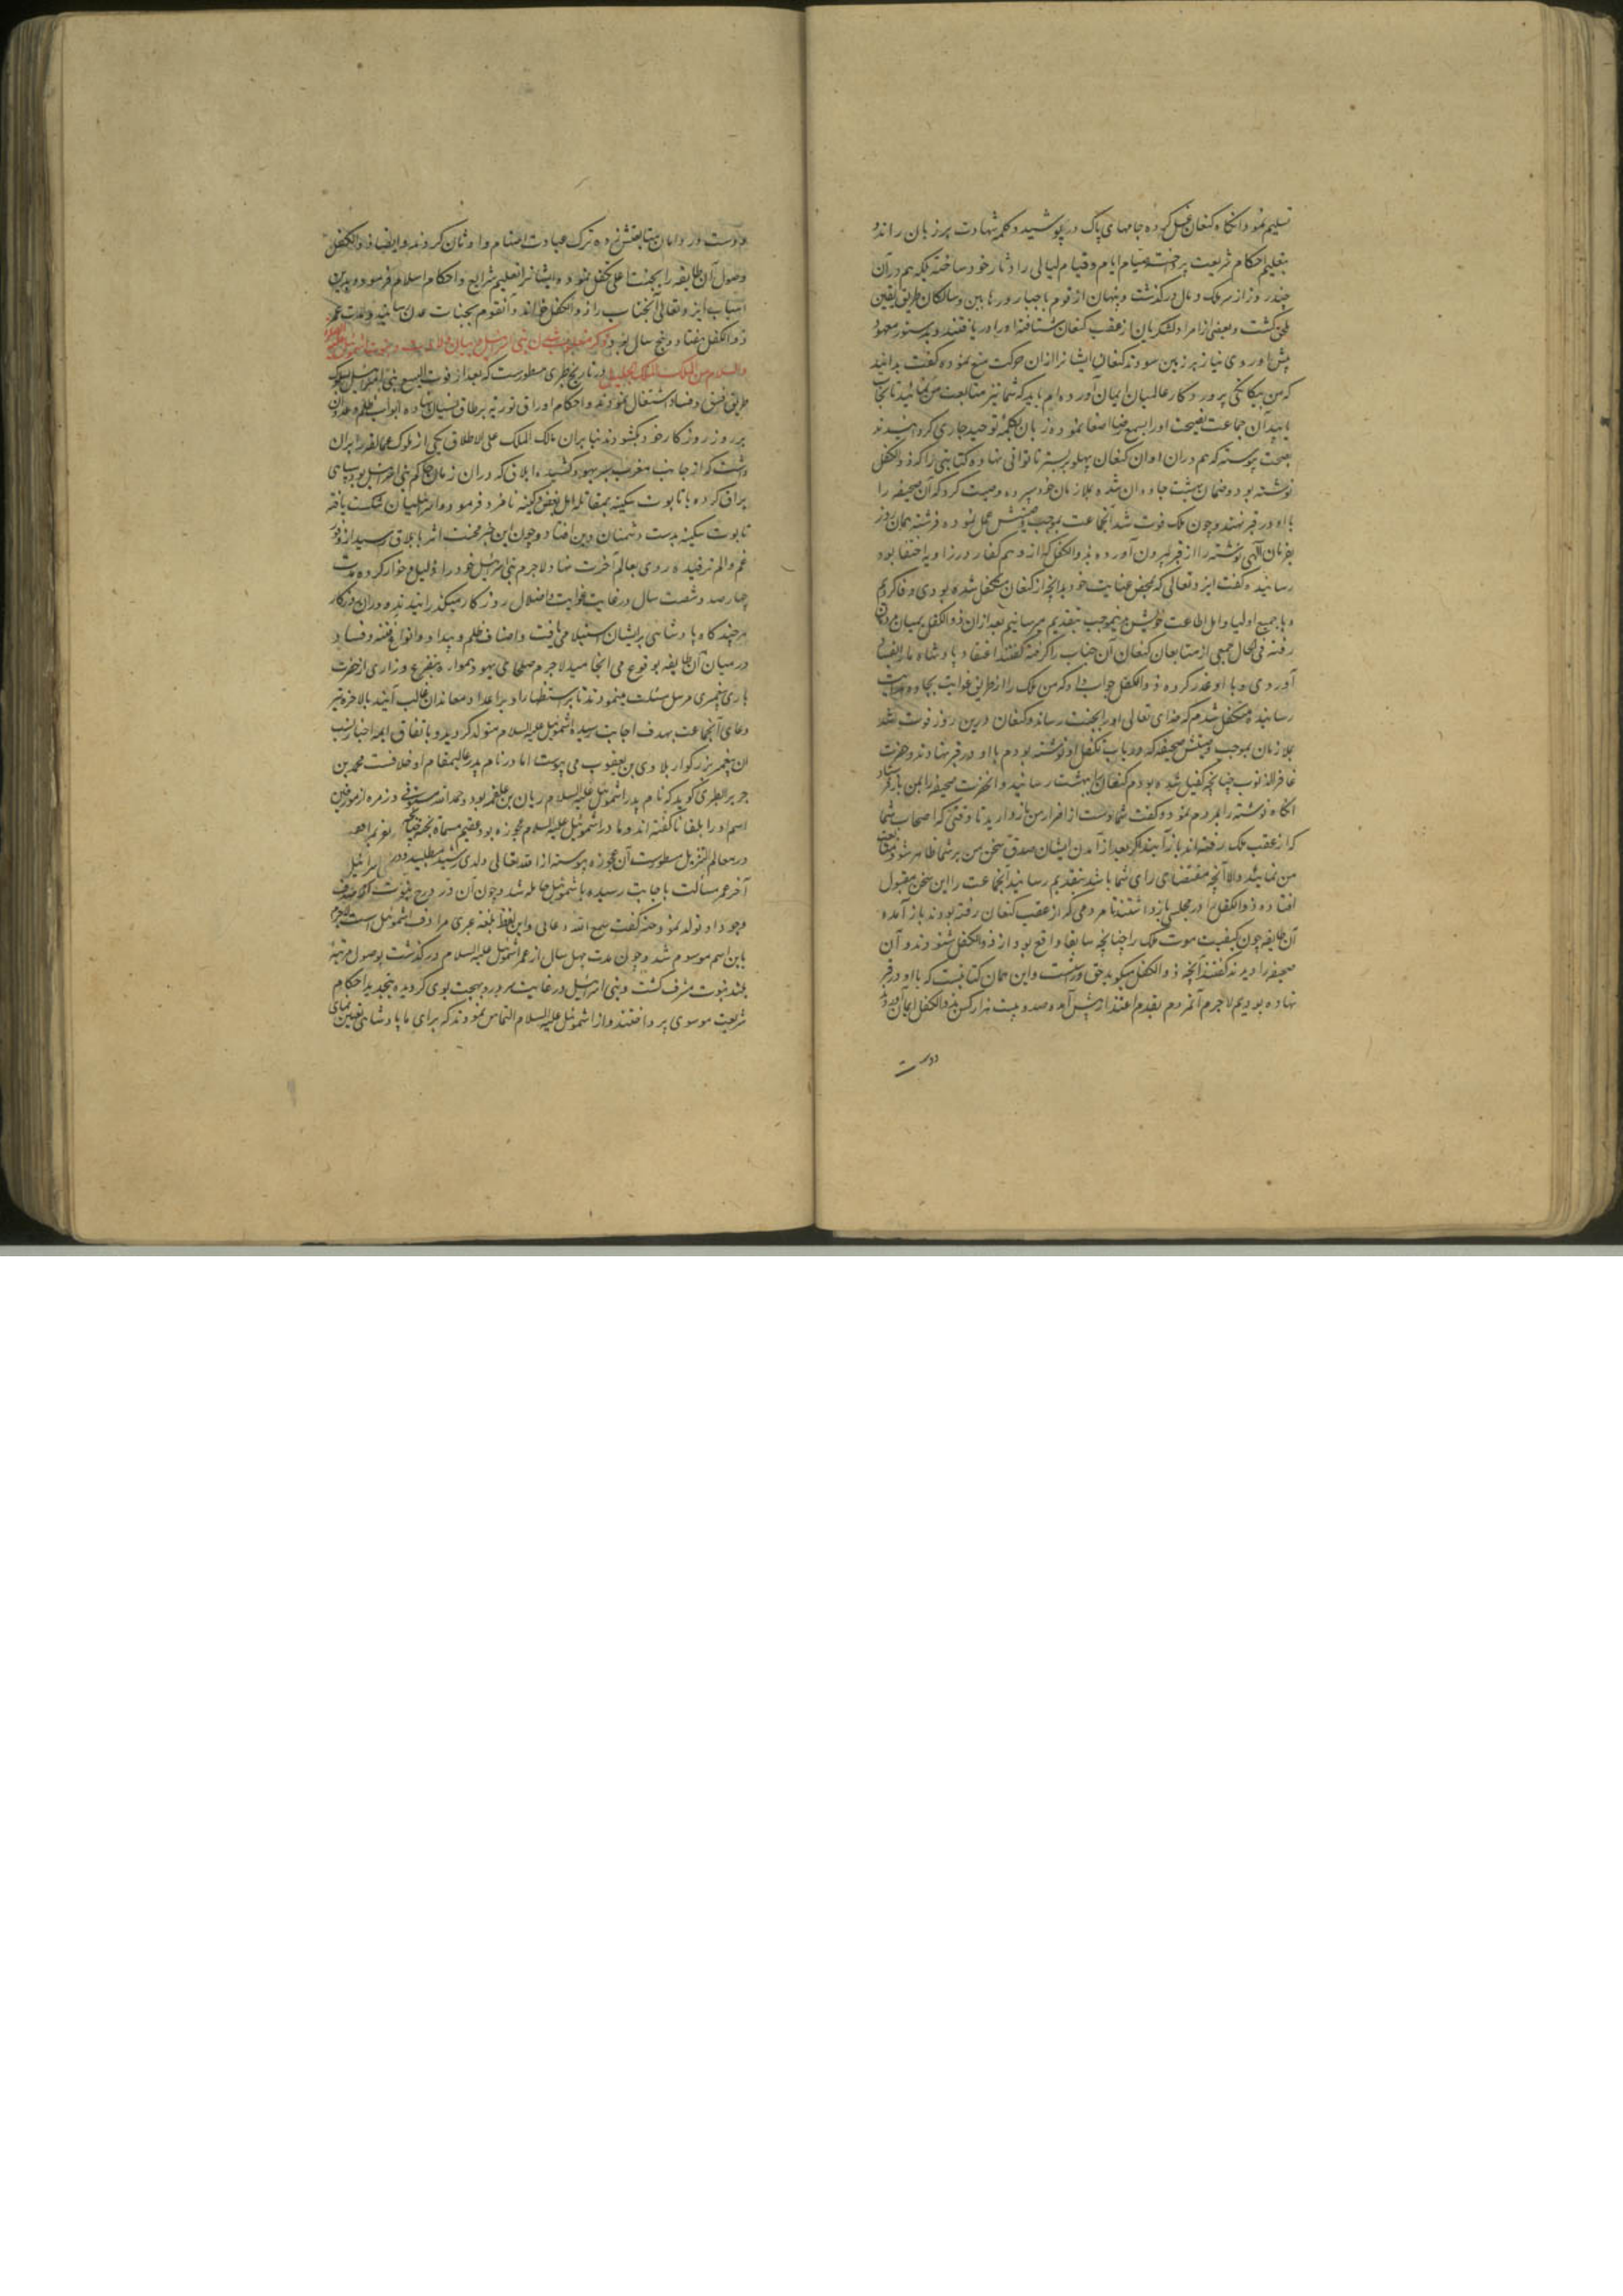 تسلیم نمود و انکاه کنعان غسل کرده جامهای پاک در پوشید و کلمه شهادت بر زبان رانده
بتعلیم احکام شریعت پرداخت و صیام ایام و قیام لیالی را دثار خود ساخته بلکه هم در آن
چند روز از سر ملک و مال درگذشت و پنهان از قوم با جبار و رهابین و سالکان طریق یقین
ملحق گشت و بعضی از امرا و لشکریان از عقب کنعان شتافته او را دریافتند و بدستور معهود
پیش او روی نیاز بر زمین سودند کنعان ایشانرا از ان حرکت منع نموده گفت بدانید
که من بیکانگی پروردکار عالمیان ایمان آورده‌ام باید که شما نیز متابعت من نمائید تا نجات
یابید آن جماعت نصیحت او را بسمع رضا اصغا نموده زبان بکلمه توحید جاری گردانیدند
بصحت پیوسته که هم دران اوان کنعان پهلو بر بستر ناتوانی نهاده کتابتی را که ذوالکفل
نوشته بود و ضمان بهشت جاودان شده بملازمان خود سپرده وصیت کرد که آن صحیفه را
با او در قبر نهند و چون ملک فوت شد آنجماعت بموجب وصیتش عمل نموده فرشته همان روز
بفرمان الهی نوشته را از قبر بیرون آورده بذوالکفل که از وهم کفار در زاویه اختفا بود
رسانیده گفت ایزد تعالی که بمحض عنایت خود بدانچه از کنعان متکفل شده بودی وفا کردیم
و با جمیع اولیا و اهل اطاعت خویش بدین موجب بتقدیم میرسانیم بعد از ان ذوالکفل بمیان مردمان
رفته فی الحال جمعی از متابعان کنعان آن جناب را گرفته گفتند اعتقاد پادشاه ما را بفساد
آوردی و با او غدر کرده ذوالکفل جواب داد که من ملک را از طریق غوایت بجاده هدایت
رسانیده متکفل شدم که خدای تعالی او را بجنت رساند و کنعان درین روز فوت شد
ملازمان بموجب وصیتش صحیفه که در باب تکفل او نوشته بودم با او در قبر نهادند و حضرت
غافر الذنوب چنانچه کفیل شده بودم کنعان را ببهشت رسانید و انحضرت صحیفه را بمن باز فرستاد
انکاه نوشته را بمردم نموده گفت شما دست از اضرار من باز دارید تا وقتی که اصحاب شما
که از عقب ملک رفته‌اند باز آیند اگر بعد از آمدن ایشان صدق سخن من بر شما ظاهر شود متابعت
من نمائید والا آنچه مقتضای رای شما باشد بتقدیم رسانید آنجماعت را این سخن مقبول
افتاده ذوالکفل را در مجلس بازداشتند تا مردمی که از عقب کنعان رفته بودند باز آمده
آن طایفه چون کیفیت موت ملک را چنانچه سابقا واقع بود از ذوالکفل شنودند و آن
صحیفه را دیدند گفتند آنچه ذوالکفل میگوید حق و راست و این همان کتابتست که با او در قبر
نهاده بودیم لاجرم آنمردم بقدم اعتذار پیش آمده صد و بیست هزار کس بذوالکفل ایمان آورده
دوست
و دست در دامان متابعتش زده ترک عبادت اصنام و اوثان کردند و ایضا ذوالکفل
وصول آن طایفه را بجنت اعلی تکفل نموده و ایشانرا تعلیم شرایع و احکام اسلام فرموده و بدین
اسباب ایزد تعالی آنجناب را ذوالکفل خواند و آنقوم بجنات عدن رسانید و مدت عمر
ذوالکفل هفتاد و پنج سال بود ذکر مغلوب شدن بنی اسرائیل
والسلام من الملک الجلیل در تاریخ طبری مسطورست که بعد از فوت الیسع بنی اسرائیل بسلوک
طریق فسق و فساد اشتغال نمودند و احکام اوراق توریه بر طاق نسیان نهاده ابواب ظلم و عدوان
بر روز روزکار خود بکشودند بنابران مالک الملک علی الاطلاق یکی از ملوک عمالقه را بران
داشت که از جانب مغرب لشکر بدیهود کشید و ایلاق که دران زمان حاکم بنی اسرائیل بود سپاهی
یراق کرده با تابوت سکینه بمقاتله اهل بغض و کینه نامزد فرموده و اسرائیلیان شکست یافته
تابوت سکینه بدست دشمنان دین افتاد و چون این خبر محنت اثر بایلاق رسید از وفور
غم و الم ترقیده روی بعالم آخرت نهاد لاجرم بنی اسرائیل خود را ذلیل و خوار کرده مدت
چهارصد و شصت سال در غایت غوایت و اضلال روزکار میکذرانیدند و دران روزکار
هر چند کاه پادشاهی بر ایشان استیلا می‌یافت و اصناف ظلم و بیداد و انواع فتنه و فساد
در میان آن طایفه بوقوع می انجامید لاجرم صلحای یهود همواره بتضرع و زاری از حضرت
باری پیغمبری مرسل مسئلت مینمودند تا باستظهار او بر اعدا و معاندان غالب آیند بالاخره تیر
دعای آنجماعت بهدف اجابت رسیده اشموئیل علیه السلام متولد گردید و باتفاق ایمه اخبار نسب
ان پیغمبر بزرگوار بلاوی بن یعقوب می پیوست اما در نام پدر عالیمقام او خلافست محمد بن
جریر الطبری گوید که نام پدر اشموئیل علیه السلام ریان بن علقمه بود و حمدالله مستوفی و زمره از مورخین
اسم او را بلقاثا گفته اند و مادر اشموئیل علیه السلام عجوزه بود عقیم مسماة بحنه
در معالم التنزیل مسطورست آن عجوزه پیوسته از الله تعالی ولدی رشید میطلبید و در
آخر عمر مسألت باجابت رسیده باشموئیل حامله شد و چون آن در درج نبوت از صدف
وجود او تولد نمود حنه گفت سمع الله دعائی و این لفظ بلغه عبری مرادف اشموئیل است لاجرم
باین اسم موسوم شد و چون مدت چهل سال از عمر اشموئیل علیه السلام درگذشت بوصول مرتبه
بلند نبوت مشرف گشت و بنی اسرائیل در غایت سرور و بهجت بوی گرویده بتجدید احکام
شریعت موسوی پرداختند و از اشموئیل علیه السلام التماس نمودند که برای ما پادشاهی تعیین نمای